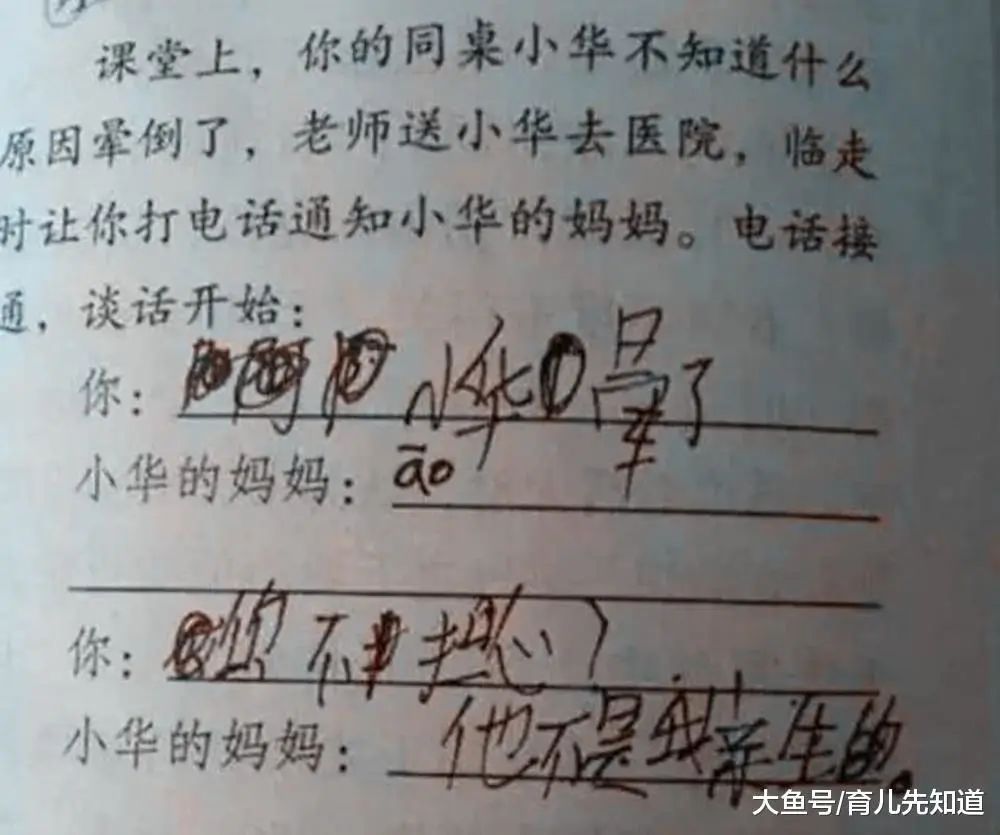 课堂上，你的同桌小华不知道什么
原因晕倒了，老师送小华去医院，临走
时让你打电话通知小华的妈妈。电话接
通，谈话开始：
你： 小华晕了
小华的妈妈：āo
你： 您不担心
小华的妈妈： 他不是我亲生的。
大鱼号/育儿先知道